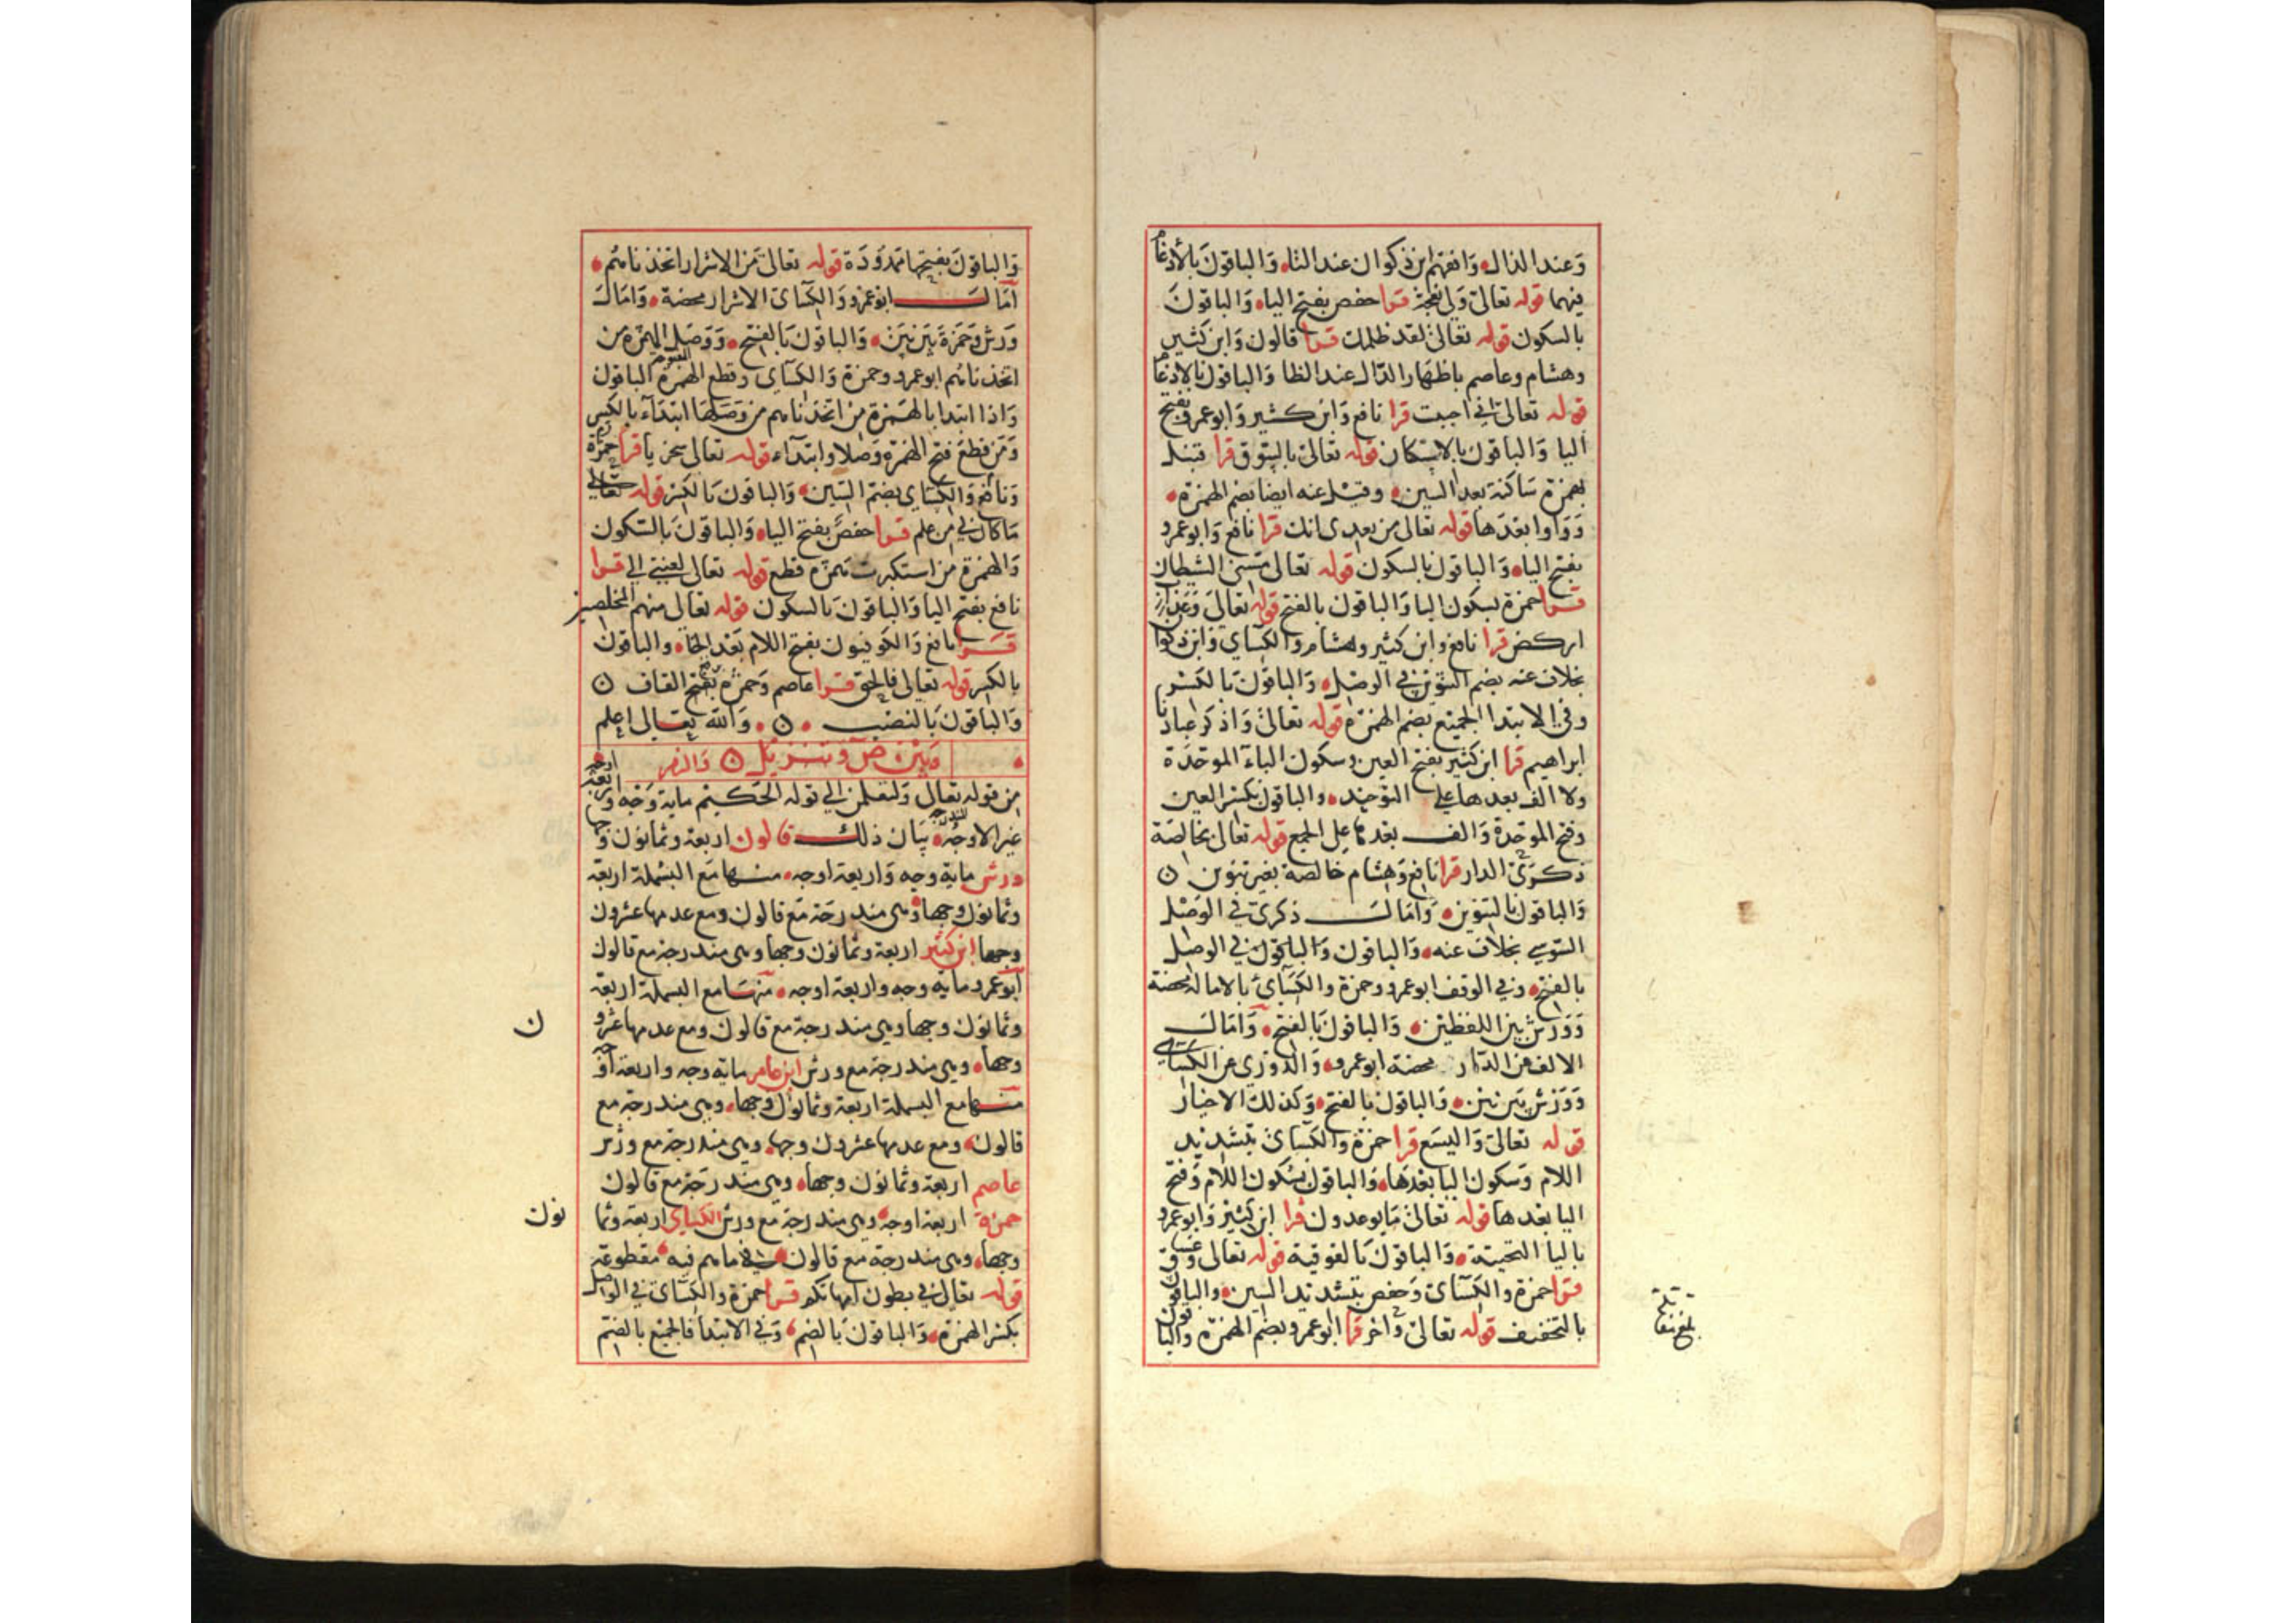 وعند الذال وافقهم ابن ذكوان عند التاء والباقون بالادغام
فيهما قوله تعالى ولي نعجة قرا حفص بفتح الياء والباقون
بالسكون قوله تعالى لقد ظلمك قرا قالون وابن كثير
وهشام وعاصم باظهار الدال عند الظا والباقون بالادغام
قوله تعالى اني احببت قرا نافع وابن كثير وابو عمرو بفتح
اليا والباقون بالاسكان قوله تعالى بالسوق قرا قنبل
بهمزة ساكنة بعد السين وقيل عنه ايضا بضم الهمزة
وواوا بعدها قوله تعالى من بعدى انك قرا نافع وابو عمرو
بفتح الياء والباقون بالسكون قوله تعالى مسني الشيطان
قرا حمزة بسكون اليا والباقون بالفتح قوله تعالى وعذاب
اركض قرا نافع وابن كثير وهشام والكسائي وابن ذكوان
بخلاف عنه بضم التنوين في الوصل والباقون بالكسر
وفي الابتدا الجميع بضم الهمزة قوله تعالى واذكر عبادنا
ابراهيم قرا ابن كثير بفتح العين وسكون الباء الموحدة
ولا الف بعدها على التوحيد والباقون بكسر العين
وفتح الموحدة والف بعدها على الجمع قوله تعالى بخالصة
ذكرى الدار قرا نافع وهشام خالصة بغير تنوين
والباقون بالتنوين وامال ذكرى في الوصل
السوسي بخلاف عنه والباقون والباقون في الوصل
بالفتح وفي الوقف ابو عمرو وحمزة والكسائي بالامالة محضة
وورش بين اللفظين والباقون بالفتح وامال
الالف من الدار محضة ابو عمرو والدوري عن الكسائي
وورش بين بين والباقون بالفتح وكذلك الاخيار
قوله تعالى واليسع قرا حمزة والكسائي بتشديد
اللام وسكون اليا بعدها والباقون بسكون اللام وفتح
اليا بعدها قوله تعالى ما يوعدون قرا ابن كثير وابو عمرو
باليا التحيتية والباقون بالفوقية قوله تعالى وغساق
قرا حمزة والكسائي وحفص بتشديد السين والباقون
بالتخفيف قوله تعالى واخر قرا ابو عمرو بضم الهمزة والباقون
بلغ مقابلة
والباقون بفتحها ممدودة قوله تعالى من الاشرار اتخذناهم
امال ابو عمرو والكسائي الاشرار محضة وامال
ورش وحمزة بين بين والباقون بالفتح ووصل الهمزة من
اتخذناهم ابو عمرو وحمزة والكسائي وقطع الهمزة الباقون
واذا ابتدا بالهمزة من اتخذناهم من وصلها ابتداء بالكسر
ومن قطع فتح الهمزة وصلا وابتداء قوله تعالى سخريا قرا حمزة
ونافع والكسائي بضم السين والباقون بالكسر قوله تعالى
ما كان لي من علم قرا حفص بفتح الياء والباقون بالسكون
والهمزة من استكبرت همزة قطع قوله تعالى لعنتي الى قرا
نافع بفتح اليا والباقون بالسكون قوله تعالى منهم المخلصين
قرا نافع والكوفيون بفتح اللام بعد الخاء والباقون
بالكسر قوله تعالى فالحق قرا عاصم وحمزة القاف
والباقون بالنصب والله تعالى اعلم
وبين ص وتنزيل والزمر
من قوله تعالى ولتعلمن الى قوله الحكيم ماية وجه واربعة اوجه
غير الاوجه المندرجة بيان ذلك قالون اربعة وثمانون وجها
ورش ماية وجه واربعة اوجه منها مع البسملة اربعة
وثمانون وجها وهى مندرجة مع قالون ومع عدمها عشرون
وجها ابن كثير اربعة وثمانون وجها وهى مندرجة مع قالون
ابو عمرو ماية وجه واربعة اوجه منها مع البسملة اربعة
وثمانون وجها وهى مندرجة مع قالون ومع عدمها عشرون
وجها وهى مندرجة مع ورش ابن عامر ماية وجه واربعة اوجه
منها مع البسملة اربعة وثمانون وجها وهى مندرجة مع
قالون ومع عدمها عشرون وجها وهى مندرجة مع ورش
عاصم اربعة وثمانون وجها وهى مندرجة مع قالون
حمزة اربعة اوجه وهى مندرجة مع ورش الكسائي اربعة وثمانون
وجها وهى مندرجة مع قالون في ما هم فيه مقطوعة
قوله تعالى في بطون امهاتكم قرا حمزة والكسائي في الوصل
بكسر الهمزة والباقون بالضم وفي الابتدا فالجميع بالضم
ن
نون